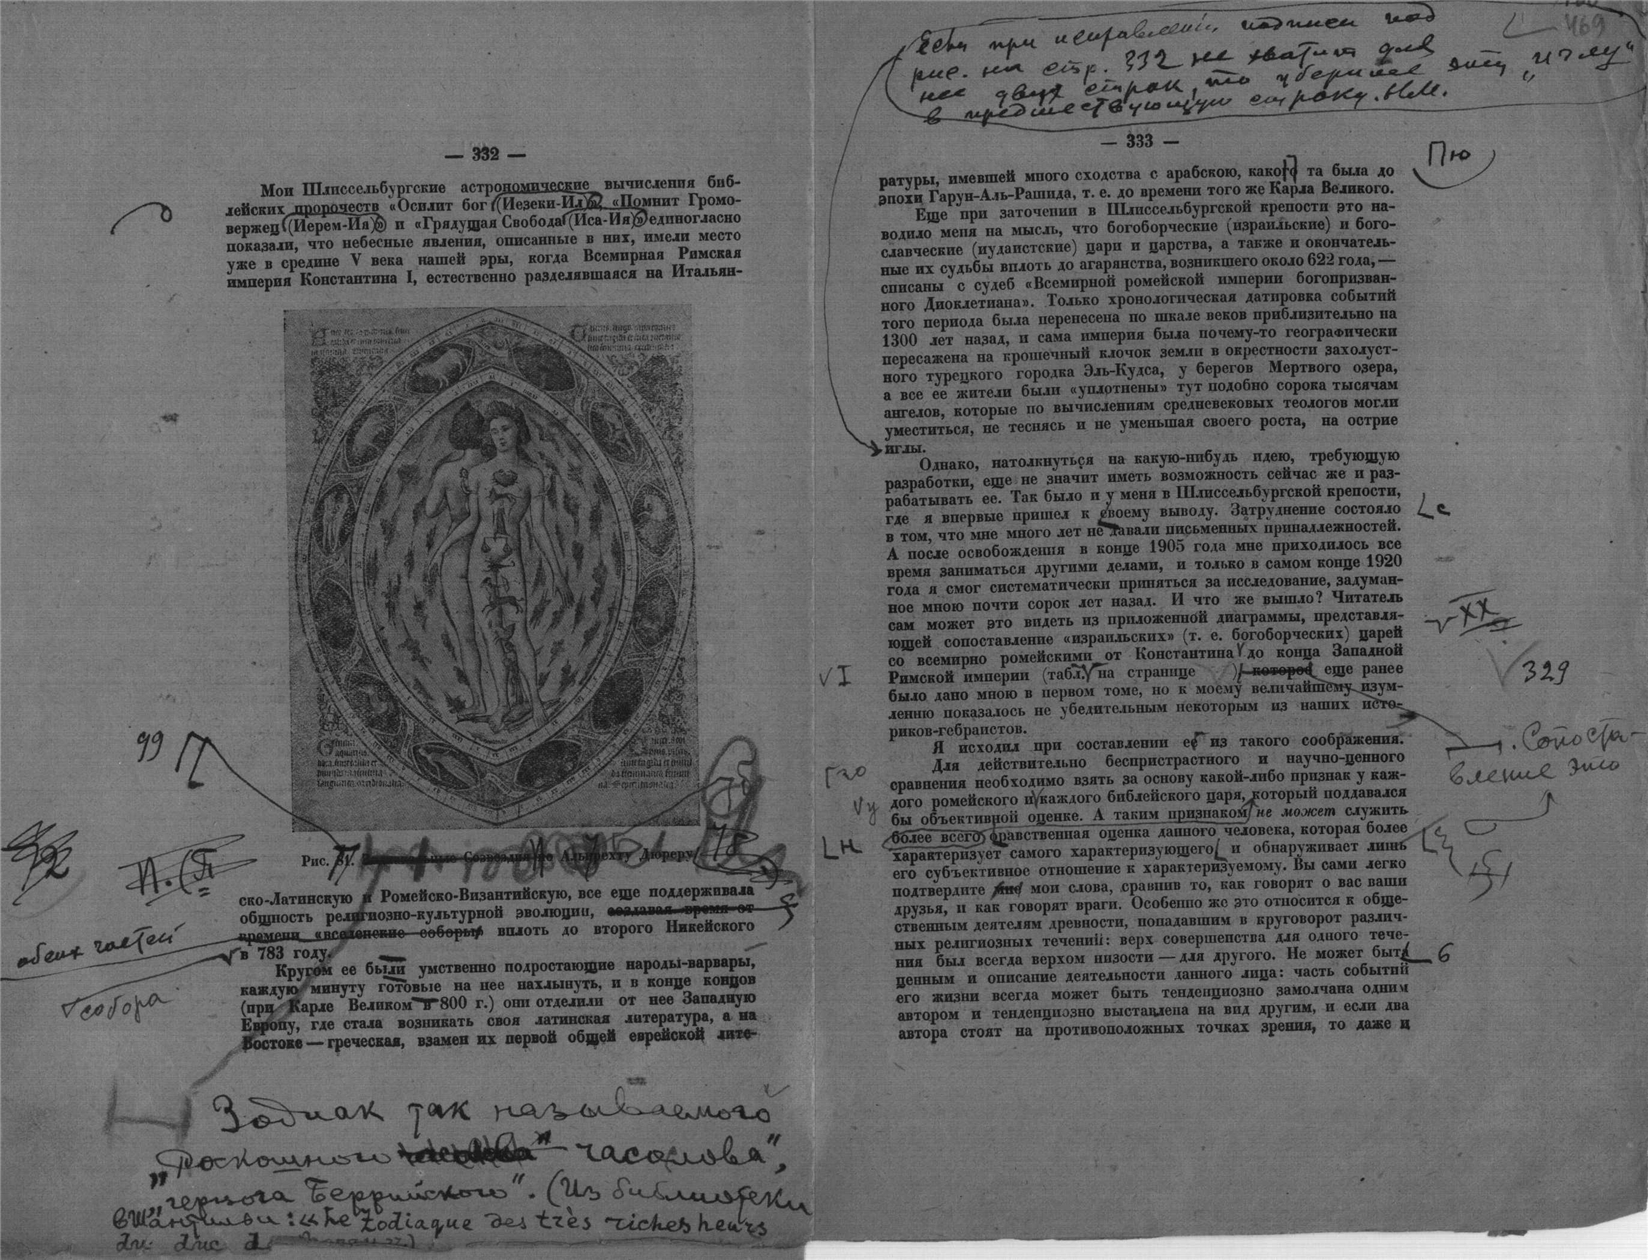 — 332 —
Мои Шлиссельбургские астрономические вычисления биб-
лейских пророчеств «Осилит бог (Иезеки-Ил)», «Помнит Громо-
вержец (Иерем-Ия)» и «Грядущая Свобода (Иса-Ия)» единогласно
показали, что небесные явления, описанные в них, имели место
уже в средине V века нашей эры, когда Всемирная Римская
империя Константина I, естественно разделявшаяся на Итальян-
99
Рис. 81. Созвездия по Альбрехту Дюреру
ско-Латинскую и Ромейско-Византийскую, все еще поддерживала
общность религиозно-культурной эволюции, создавая время от
времени «вселенские соборы» вплоть до второго Никейского
в 783 году.
обеих частей
собора
Кругом ее были умственно подростающие народы-варвары,
каждую минуту готовые на нее нахлынуть, и в конце концов
(при Карле Великом в 800 г.) они отделили от нее Западную
Европу, где стала возникать своя латинская литература, а на
Востоке — греческая, взамен их первой общей еврейской лите-
Зодиак так называемого
„Роскошного часослова",
„герцога Беррийского". (Из библиотеки
в Шантильи: «Le Zodiaque des très riches heurs
du duc d
469
Если при исправлении подписи под
рис. на стр. 332 не хватит для
нее двух строк, то уберите эту „иглу"
в предшествующую строку. Н.М.
— 333 —
ратуры, имевшей много сходства с арабскою, какой та была до
эпохи Гарун-Аль-Рашида, т. е. до времени того же Карла Великого.
Пю
Еще при заточении в Шлиссельбургской крепости это на-
водило меня на мысль, что богоборческие (израильские) и бого-
славческие (иудаистские) цари и царства, а также и окончатель-
ные их судьбы вплоть до агарянства, возникшего около 622 года, —
списаны с судеб «Всемирной ромейской империи богопризван-
ного Диоклетиана». Только хронологическая датировка событий
того периода была перенесена по шкале веков приблизительно на
1300 лет назад, и сама империя была почему-то географически
пересажена на крошечный клочок земли в окрестности захолуст-
ного турецкого городка Эль-Кудса, у берегов Мертвого озера,
а все ее жители были «уплотнены» тут подобно сорока тысячам
ангелов, которые по вычислениям средневековых теологов могли
уместиться, не теснясь и не уменьшая своего роста, на острие
иглы.
Однако, натолкнуться на какую-нибудь идею, требующую
разработки, еще не значит иметь возможность сейчас же и раз-
рабатывать ее. Так было и у меня в Шлиссельбургской крепости,
где я впервые пришел к своему выводу. Затруднение состояло
с
в том, что мне много лет не давали письменных принадлежностей.
А после освобождения в конце 1905 года мне приходилось все
время заниматься другими делами, и только в самом конце 1920
года я смог систематически приняться за исследование, задуман-
ное мною почти сорок лет назад. И что же вышло? Читатель
сам может это видеть из приложенной диаграммы, представля-
XX
ющей сопоставление «израильских» (т. е. богоборческих) царей
со всемирно ромейскими от Константина до конца Западной
I
Римской империи (табл. на странице ) которое еще ранее
329
было дано мною в первом томе, но к моему величайшему изум-
лению показалось не убедительным некоторым из наших исто-
риков-гебраистов.
Сопоста-
вление это
Я исходил при составлении ее из такого соображения.
го
Для действительно беспристрастного и научно-ценного
сравнения необходимо взять за основу какой-либо признак у каж-
дого ромейского и каждого библейского царя, который поддавался
у
бы объективной оценке. А таким признаком не может служить
н
более всего нравственная оценка данного человека, которая более
характеризует самого характеризующего и обнаруживает лишь
его субъективное отношение к характеризуемому. Вы сами легко
подтвердите мои слова, сравнив то, как говорят о вас ваши
друзья, и как говорят враги. Особенно же это относится к обще-
ственным деятелям древности, попадавшим в круговорот различ-
ных религиозных течений: верх совершенства для одного тече-
ния был всегда верхом низости — для другого. Не может быть
ценным и описание деятельности данного лица: часть событий
его жизни всегда может быть тенденциозно замолчана одним
автором и тенденциозно выставлена на вид другим, и если два
автора стоят на противоположных точках зрения, то даже и